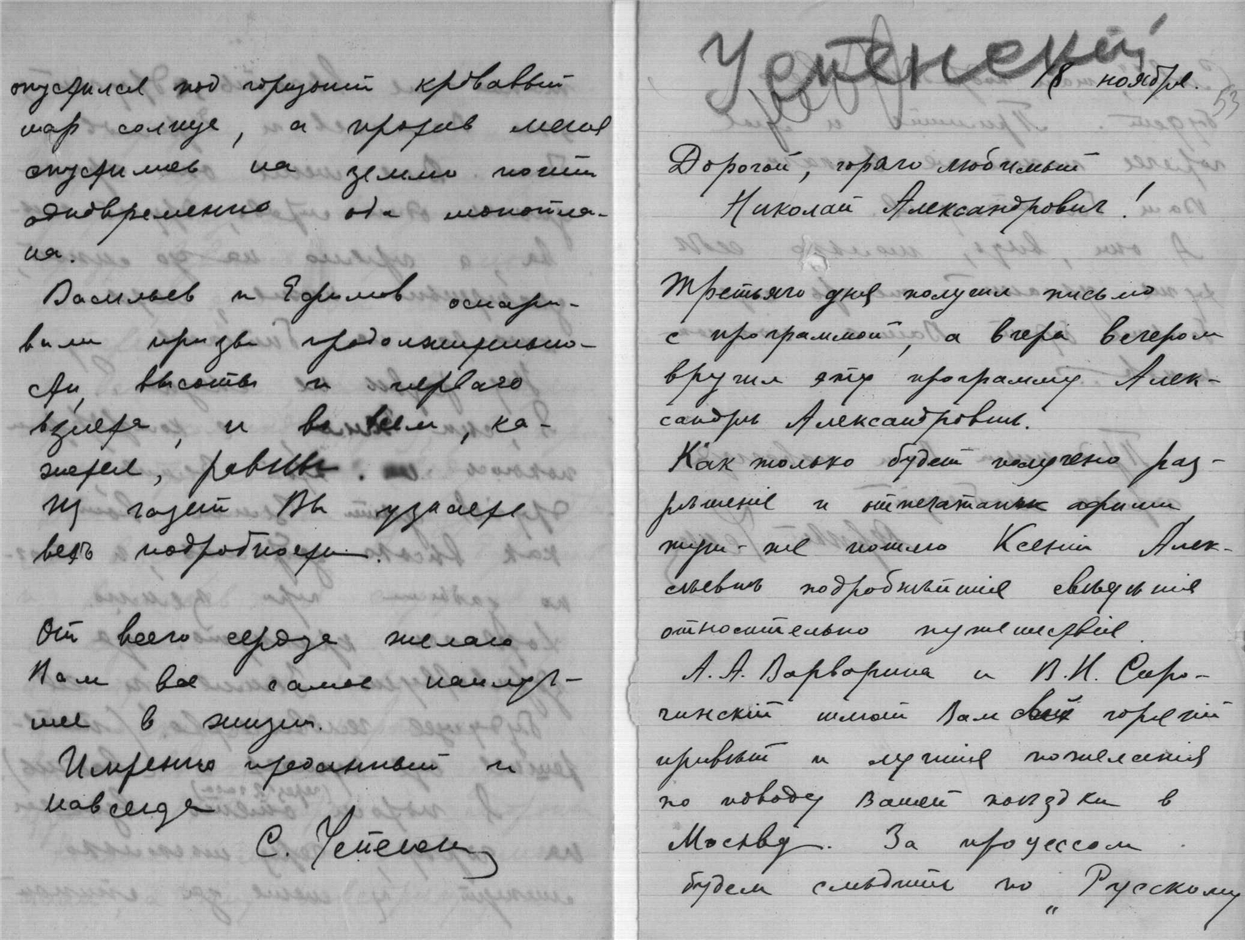 опустился под горизонт кровавый
шар солнце, а против меня
опустились на землю почти
одновременно оба монопла-
на.
Васильев и Ефимов оспари-
вали призы продолжительно-
сти, высоты и перваго
взлета, и во всем, ка-
жется, равны.
Из газет Вы узнаете
все подробности.
От всего сердца желаю
Вам все самое наилуч-
шее в жизни.
Искренно преданный и
навсегда
С. Успенский
Успенский
18 ноября.
53
Дорогой, горячо любимый
Николай Александрович!
Третьяго дня получил письмо
с программой, а вчера вечером
вручил эту программу Алек-
сандрѣ Александровнѣ.
Как только будет получено раз-
рѣшение и отпечатаны афиши
тут-же пошлю Ксении Алек-
сѣевнѣ подробнѣйшия свѣдѣния
относительно путешествие.
А. А. Варварина и В. И. Сиро-
чинский шлют Вам свой горячий
привѣт и лучшия пожелания
по поводу Вашей поѣздки в
Москву. За процессом
будем слѣдить по „Русскому